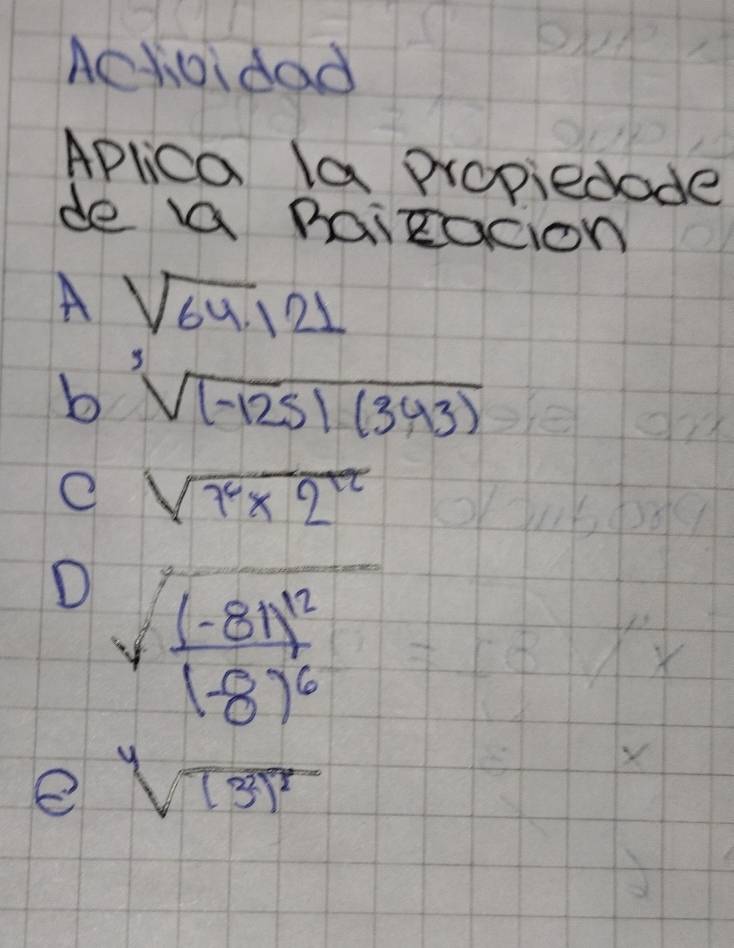 Actividad
Aplica la propiedade
de la Raizacion
A √64.121
b ³√(-125) (343)
C √7⁶ x 2¹²
D √(-8)¹²
(-8)⁶
e ⁴√(3²)²